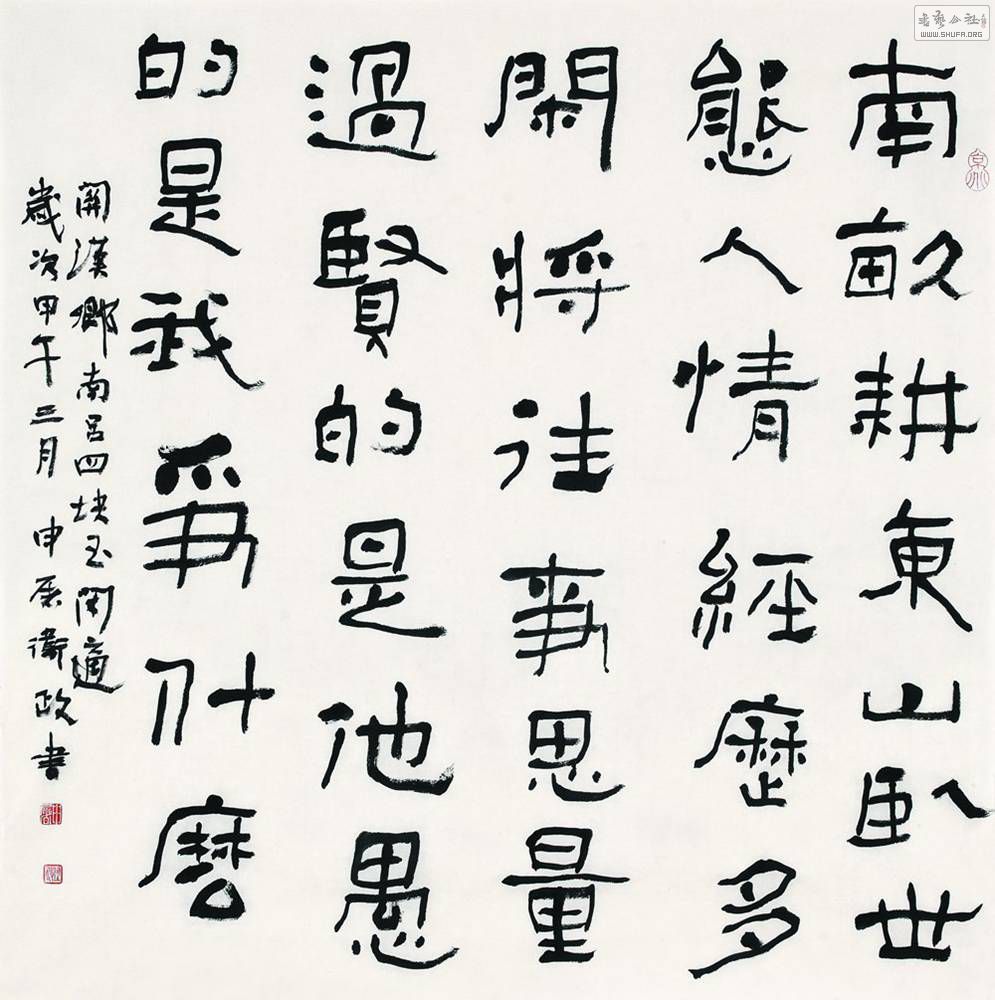 南畝耕東山臥世
態人情經歷多
閑將往事思量
過賢的是他愚
的是我爭什麼
關漢卿南呂四块玉閑適
歲次甲午三月申展衛政書
書藝公社
WWW.SHUFA.ORG